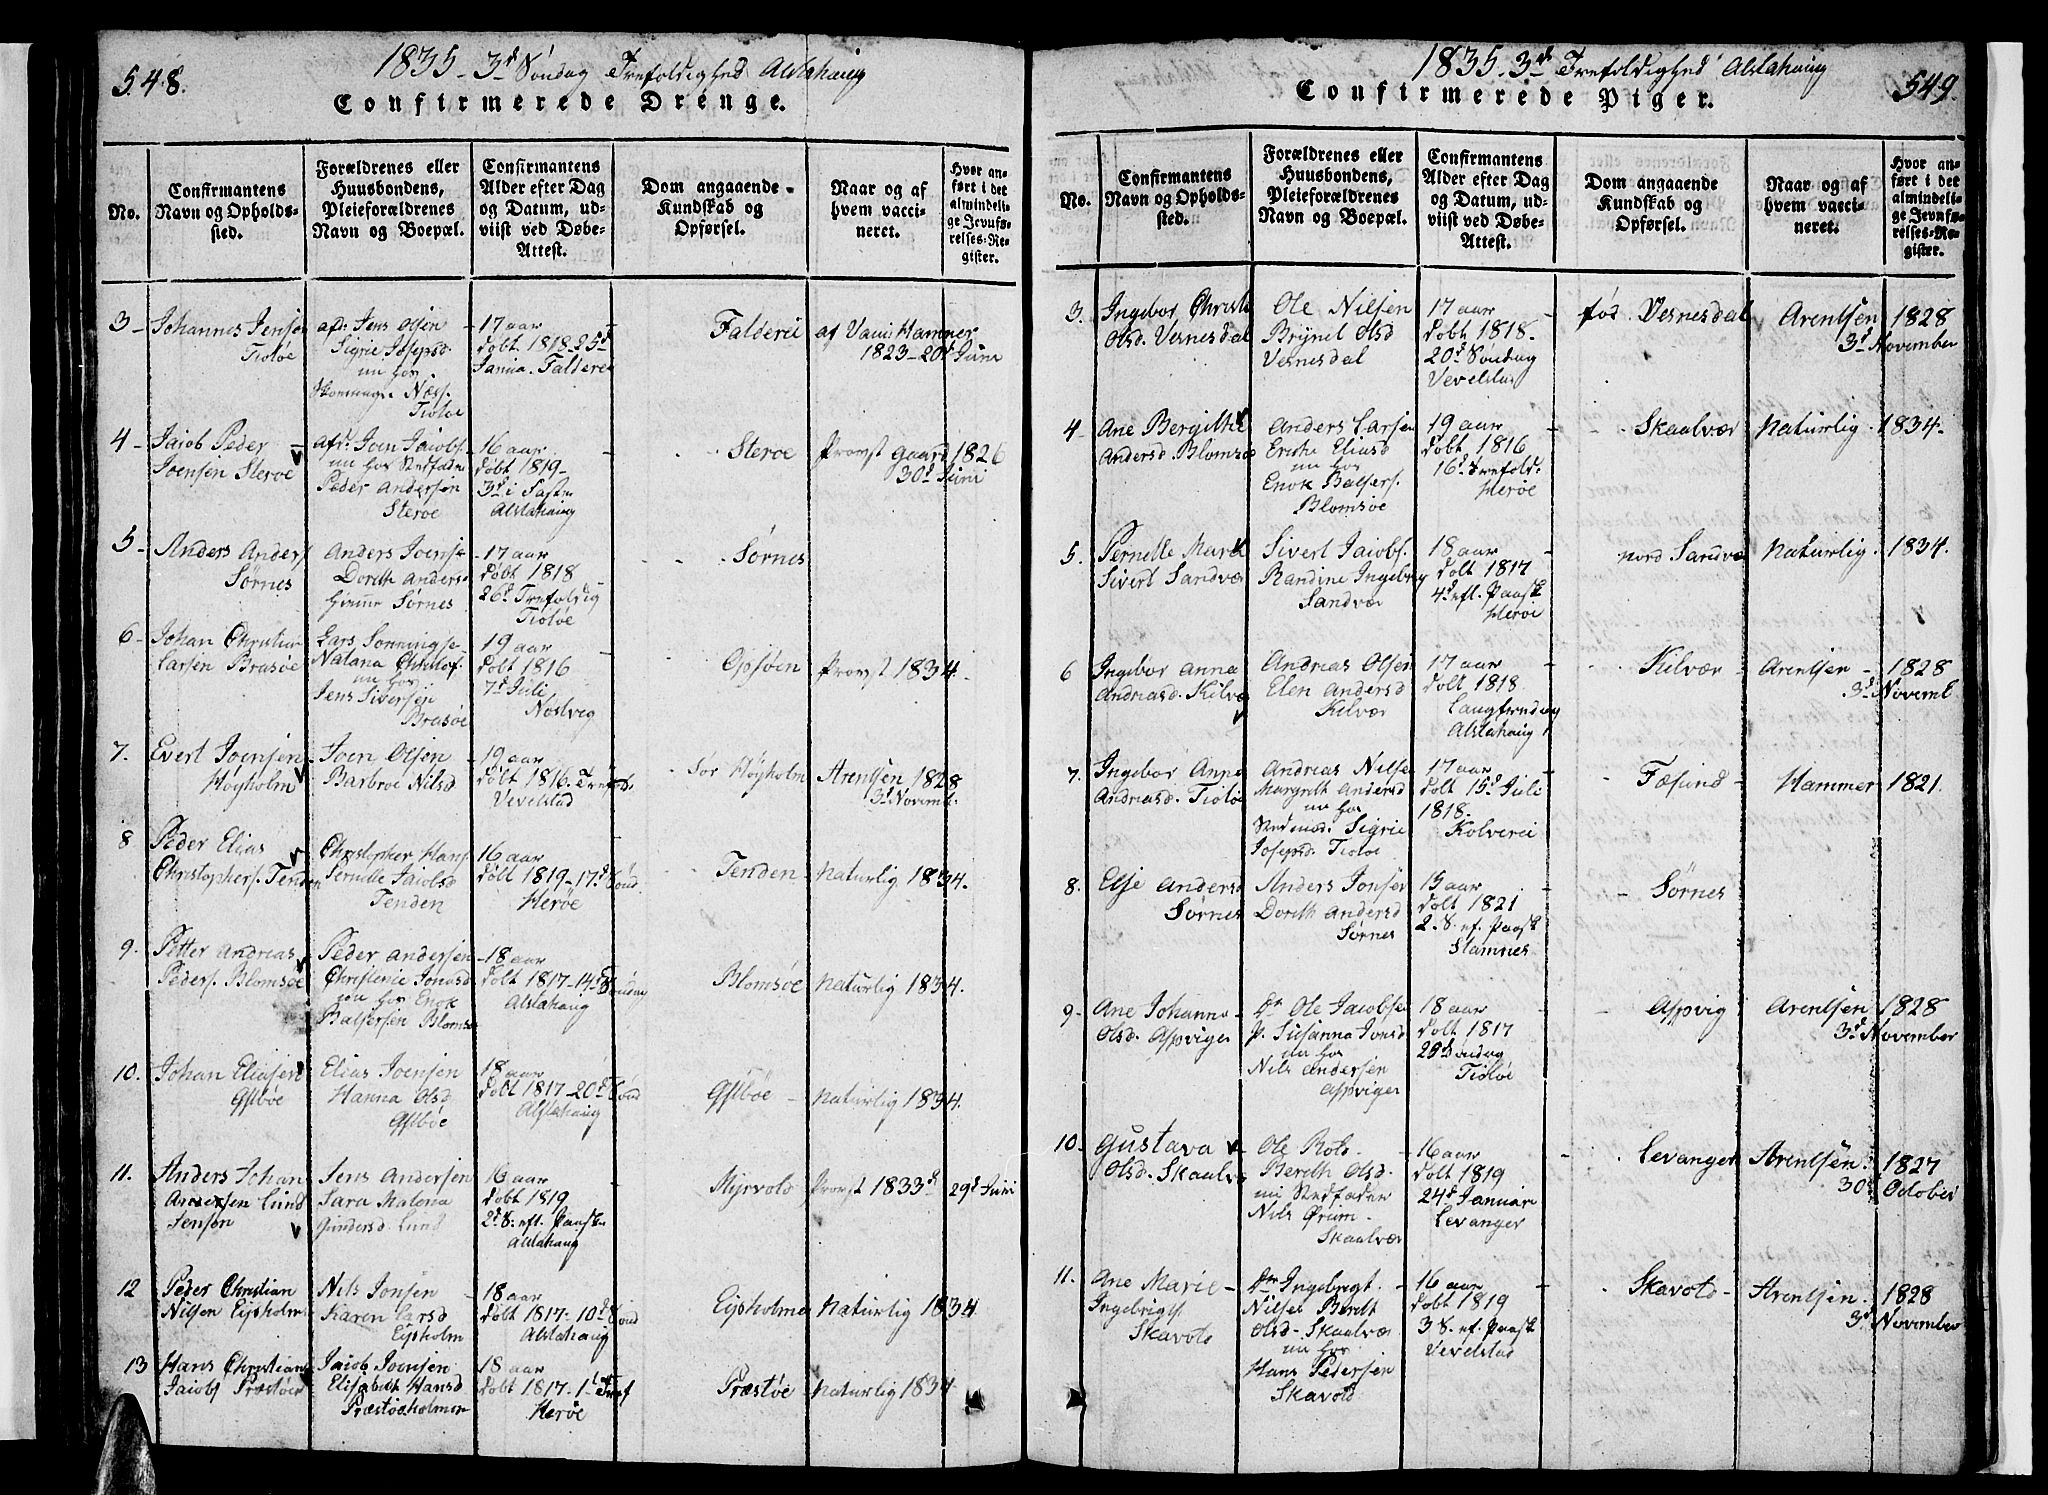 548.
1835 - 3d Söndag Trefoldighed Alstahaug
Confirmerede Drenge.
No.
Confirmantens
Navn og Opholds-
sted.
Forældrenes eller
Huusbondens,
Pleieforældrenes
Navn og Boepæl.
Confirmantens
Alder efter Dag
og Datum, ud-
viist ved Døbe-
Attest.
Dom angaaende
Kundskab og
Opførsel.
Naar og af
hvem vacci-
neret.
Hvor an-
ført i det
almindeli-
ge Jevnfø-
relses-Re-
gister.
3 -
Johannes Jensen
Tiotöe
afd: Jens Olsen
Sigrie Josepsd.
nu hos
Næss.
Tiotöe
17 aar
döbt 1818-25d
Janua. Falderei
Falderei
af Hammer
1823-20d Juni
4 -
Jaiob Peder
Joensen Steroe
afd: Joen Jaiobs.
nu hos Stedfader
Peder Andersön
Steroe
16 aar
döbt 1819-
3d i Faste
Alstahaug
Steroe
Provst Gaard 1826
30d Juni
5 -
Anders Anders.
Sörnes
Anders Joense
Doreth Anders.
Sörnes
17 aar
döbt 1818
26d Trefoldig
Tiotöe
Sörnes
6 -
Johan Christian
Larsen Brasöe
Lars Sonningse
Natana Christof.
nu hos
Jens Siversen
Brasöe
19 aar
döbt 1816
7d Juli
Nostvig
Opsöen
Provst 1834.
7.
Evert Joensen
Höyholm
Joen Olsen
Barbroe Nilsd
19 aar
döbt 1816. Trefold.
Vevelstad
Sör Höyholm
Arentsen 1828
3d Novemb.
8
Peder Elias
Christophers. Tenden
Christopher Hans.
Pernille Jaiobsd
Tenden
16 aar
döbt 1819-17d Sönd.
Heröe
Tenden
Naturlig 1834.
9.
Petter Andreas
Peders. Blomsöe
Peder Andersen
Christence Jonasd
nu hos Enok
Baltsersen Blomsö
18 aar
döbt 1817-14d Söndag
Alstahaug
Blomsöe
Naturlig 1834.
10.
Johan Eliasen
Elias Joensen
Hanna Olsd
18 aar
döbt 1817-20d Sönd
Alstahaug
Naturlig 1834.
11.
Anders Johan
Lund
Jensen
Jens Andersen
Sara Malena
Gundersd Lund
16 aar
döbt 1819
2d S. eft. Paaske
Alstahaug
Myrvold
Provst 1833 d
29d Juni
12
Peder Christian
Nilsen Eijsholm
Nils Jonsen
Karen Larsd
Eijsholm
18 aar
döbt 1817-10d Sönd
Alstahaug
Eijsholme
Naturlig 1834
13
Hans Christian
Jaiobs Præstöe
Jaiob Joensen
Elisabeth Hansd
Præstöeholmen
18 aar
döbt 1817-1d Tref
Heröe
Præstöe
Naturlig 1834
1835. 3d Trefoldighed Alstahaug
549.
Confirmerede Piger.
No.
Confirmantens
Navn og Opholds-
sted.
Forældrenes eller
Huusbondens,
Pleieforældrenes
Navn og Boepæl.
Confirmantens
Alder efter Dag
og Datum, ud-
viist ved Døbe-
Attest.
Dom angaaende
Kundskab og
Opførsel.
Naar og af
hvem vacci-
neret.
Hvor an-
ført i det
almindeli-
ge Jevnfø-
relses-Re-
gister.
3.
Ingebor Christi
Olsd. Vesnesdal
Ole Nilsen
Brynel Olsd
Vesnesdal
17 aar
döbt 1818-
20d Söndag
Vevelstad
föd Vesnesdal
Arentsen 1828
3d November
4
Ane Bergithe
Andersd Blomsöe
Anders Larsen
Eliasd
nu hos
Enok Baltsers.
Blomsöe
19 aar
döbt 1816
16d Trefold.
Heröe
Skaalvær
Naturlig 1834.
5.
Pernelle Maria
Sivert Sandvær
Sivert Jaiobs.
Randine Ingebrig
Sandvær
18 aar
döbt 1817
4d eft. Paask
Heröe
nord Sandvæ
Naturlig 1834.
6
Ingebor Anna
Andreasd. Kilvæ
Andreas Olsen
Elen Andersd
Kilvær
17 aar
döbt 1818
Langfredag
Alstahaug
Kilvær
Arentsen - 1828
3d Novemb.
7.
Ingebor Anna
Andreasd. Tiotöe
Andreas Nilse
Margreth Andersd
nu hos
Stedmod. Sigrie
Josepsd. Tiotöe
17 aar
döbt 15d Juli
1818.
Kolverei
Foesund
Hammer 1821.
8.
Else Andersd
Sörnes
Anders Jonsen
Doreth Andersd
Sörnes
15 aar
döbt 1821
2. S. ef. Paask
Stamnes
Sörnes
9.
Ane Johanna
Olsd. Aspviger
Ole Jacobsen
P. Susanna Jonsd
nu hos
Nils Andersen
Aspviger
18 aar
döbt 1817
Söndag
Tiotöe
Aspvig
Arentsen 1828
3d November
10.
Gustava
Olsd. Skaalvæ
Ole Rols.
Bereth Olsd.
nu Stedfader
Nils Örum
Skaalvær
16 aar
döbt 1819
24d Januar
Levanger
Levanger
Arentsen. 1827
30d October
11.
Ane Marie
Ingebrigts.
Skavold
Ingebrygt
Nilsen Bereth
Olsd. Skaalvær
nu hos
Hans Pedersen
Skavold
16 aar
döbt 1819
3 S. ef. Paask
Vevelstad
Skavold
Arentsen. 1828
3d November